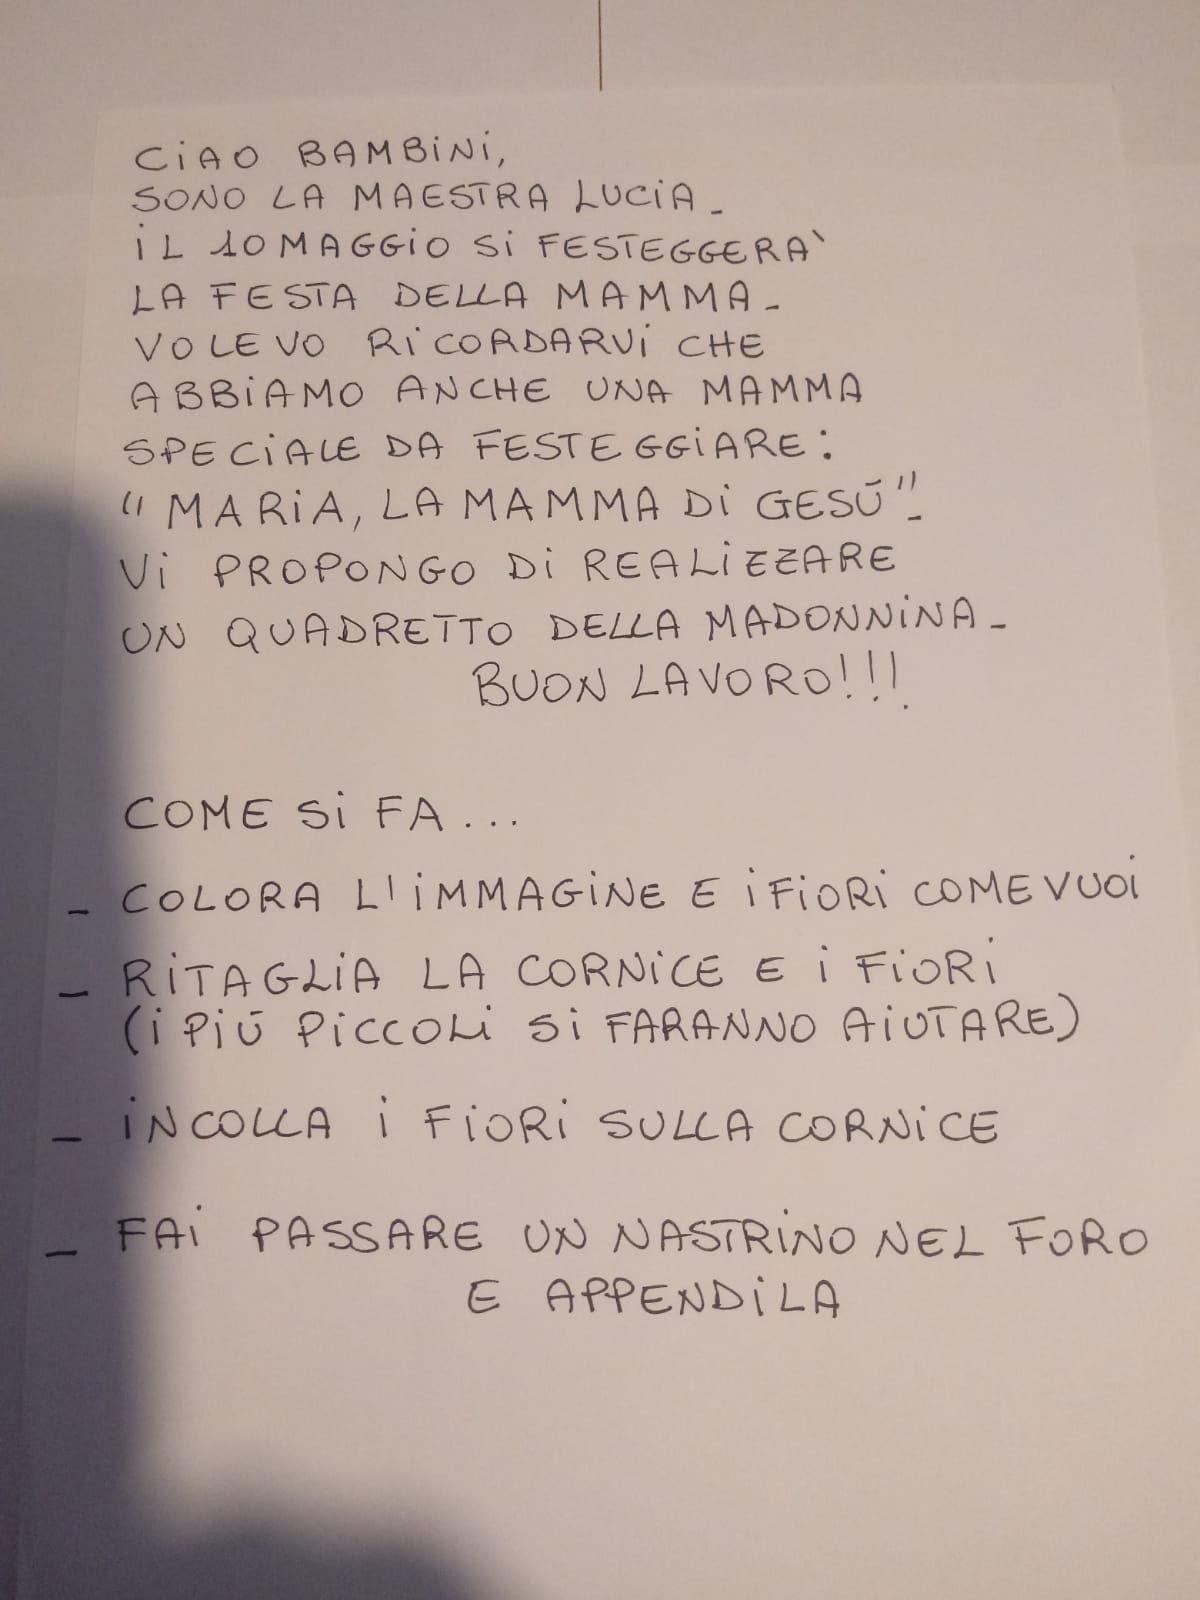 CiAO BAMBiNi,
SONO LA MAESTRA LUCiA_
iL 10 MAGGiO Si FESTEGGERA`
LA FESTA DELLA MAMMA_
VOLEVO RiCORDARVi CHE
ABBiAMO ANCHE UNA MAMMA
SPECiALE DA FESTEGGiARE:
"MARiA, LA MAMMA Di GESŪ"_
Vi PROPONGO Di REALiZZARE
UN QUADRETTO DELLA MADONNiNA_
BUON LAVORO!!!
COME Si FA...
_ COLORA L'iMMAGiNE E i FiORi COME VUOi
_ RiTAGLiA LA CORNiCE E i FiORi
(i PiŪ PiCCOLi Si FARANNO AiUTARE)
_ iNCOLLA i FiORi SULLA CORNiCE
_ FAi PASSARE UN NASTRiNO NEL FORO
E APPENDiLA